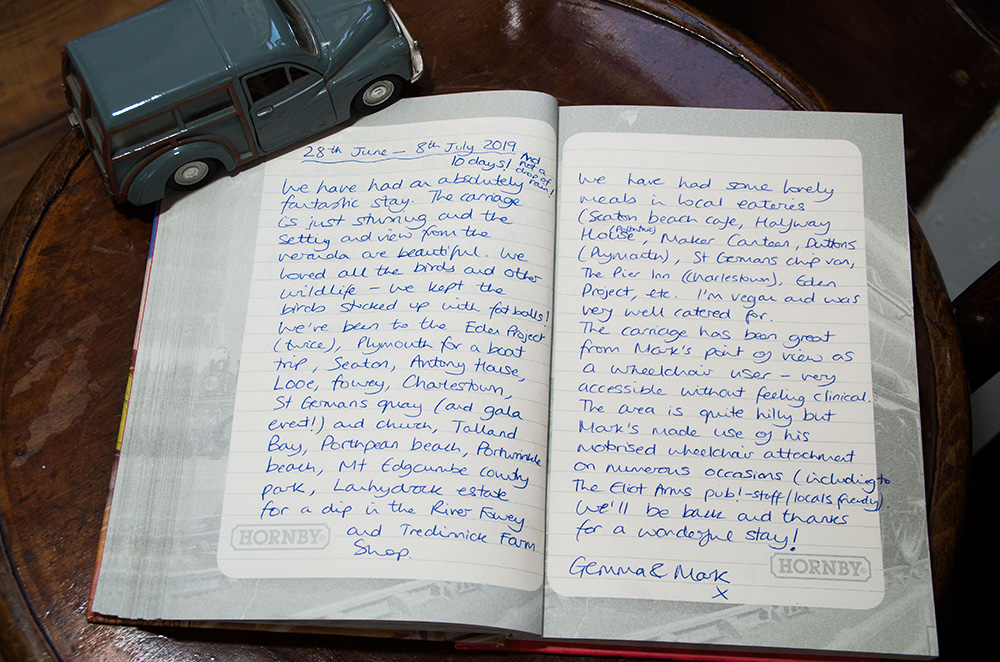 28th June – 8th July 2019
10 days! And not a drop of rain!
We have had an absolutely
fantastic stay. The carriage
is just stunning and the
setting and view from the
veranda are beautiful. We
loved all the birds and other
wildlife – we kept the
birds stocked up with fat balls!
We've been to the Eden Project
(twice), Plymouth for a boat
trip, Seaton, Antony House,
Looe, Fowey, Charlestown,
St Germans quay (and gala
event!) and church, Talland
Bay, Porthpean beach, Portwrinkle
beach, Mt Edgcumbe country
park, Lanhydrock estate
for a dip in the River Fowey
and Tredinnick Farm
Shop.
HORNBY®
We have had some lovely
meals in local eateries
(Seaton beach cafe, Halfway
House (Polbathic), Maker Canteen, Duttons
(Plymouth), St Germans chip van,
The Pier Inn (Charlestown), Eden
Project, etc. I'm vegan and was
very well catered for.
The carriage has been great
from Mark's point of view as
a wheelchair user – very
accessible without feeling clinical.
The area is quite hilly but
Mark's made use of his
motorised wheelchair attachment
on numerous occasions (including to
The Eliot Arms pub! – staff/locals friendly).
We'll be back and thanks
for a wonderful stay!
Gemma & Mark
x
HORNBY®